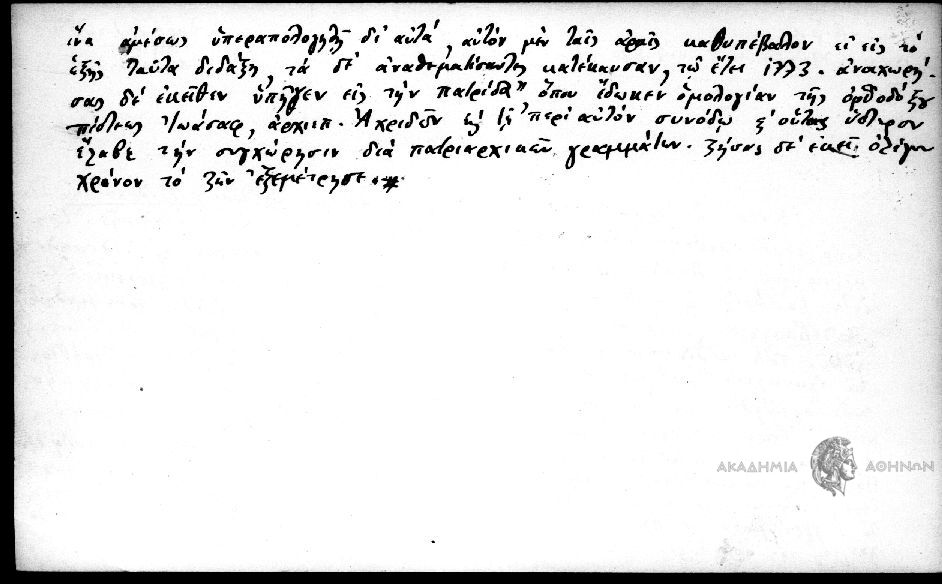 ἵνα ἀμέσως ὑπεραπολογηθῇ δι' αὐτά, αὐτόν μέν ταῖς ἀραῖς καθυπέβαλον εἰ εἰς τό
ἑξῆς ταῦτα διδάξῃ, τά δέ ἀναθεματίσαντες κατέκαυσαν, τῷ ἔτει 1723. ἀναχωρή-
σας δέ ἐκεῖθεν ὑπῆγεν εἰς τήν πατρίδα" ὅπου ἔδωκεν ὁμολογίαν τῆς ὀρθοδόξου
πίστεως Ἰωάσαφ, ἀρχιεπ. Ἀχριδῶν περί αὐτόν συνόδῳ οὕτως ὕστερον
ἔλαβε τήν συγχώρησιν διά πατριαρχικῶν γραμμάτων. Ζήσας δέ ἐκεῖ ὀλίγον
χρόνον τό ζῆν ἐξεμέτρησε.
ΑΚΑΔΗΜΙΑ ΑΘΗΝΩΝ